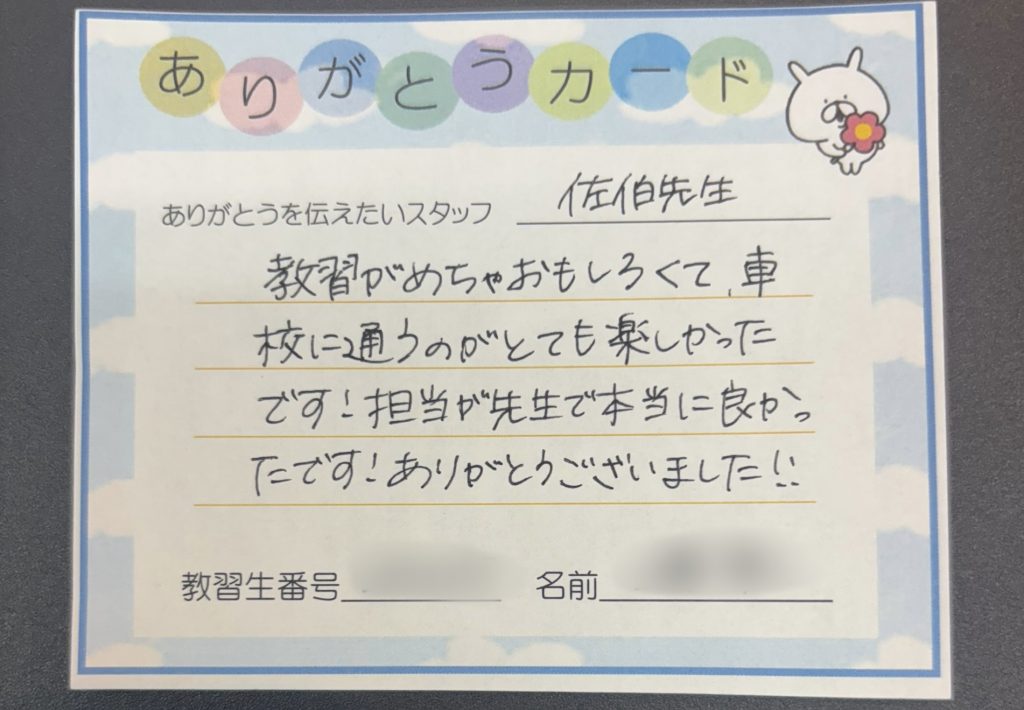 ありがとうカード
ありがとうを伝えたいスタッフ 佐伯先生
教習がめちゃおもしろくて、車
校に通うのがとても楽しかった
です!担当が先生で本当に良かっ
たです!ありがとうございました!!
教習生番号 名前